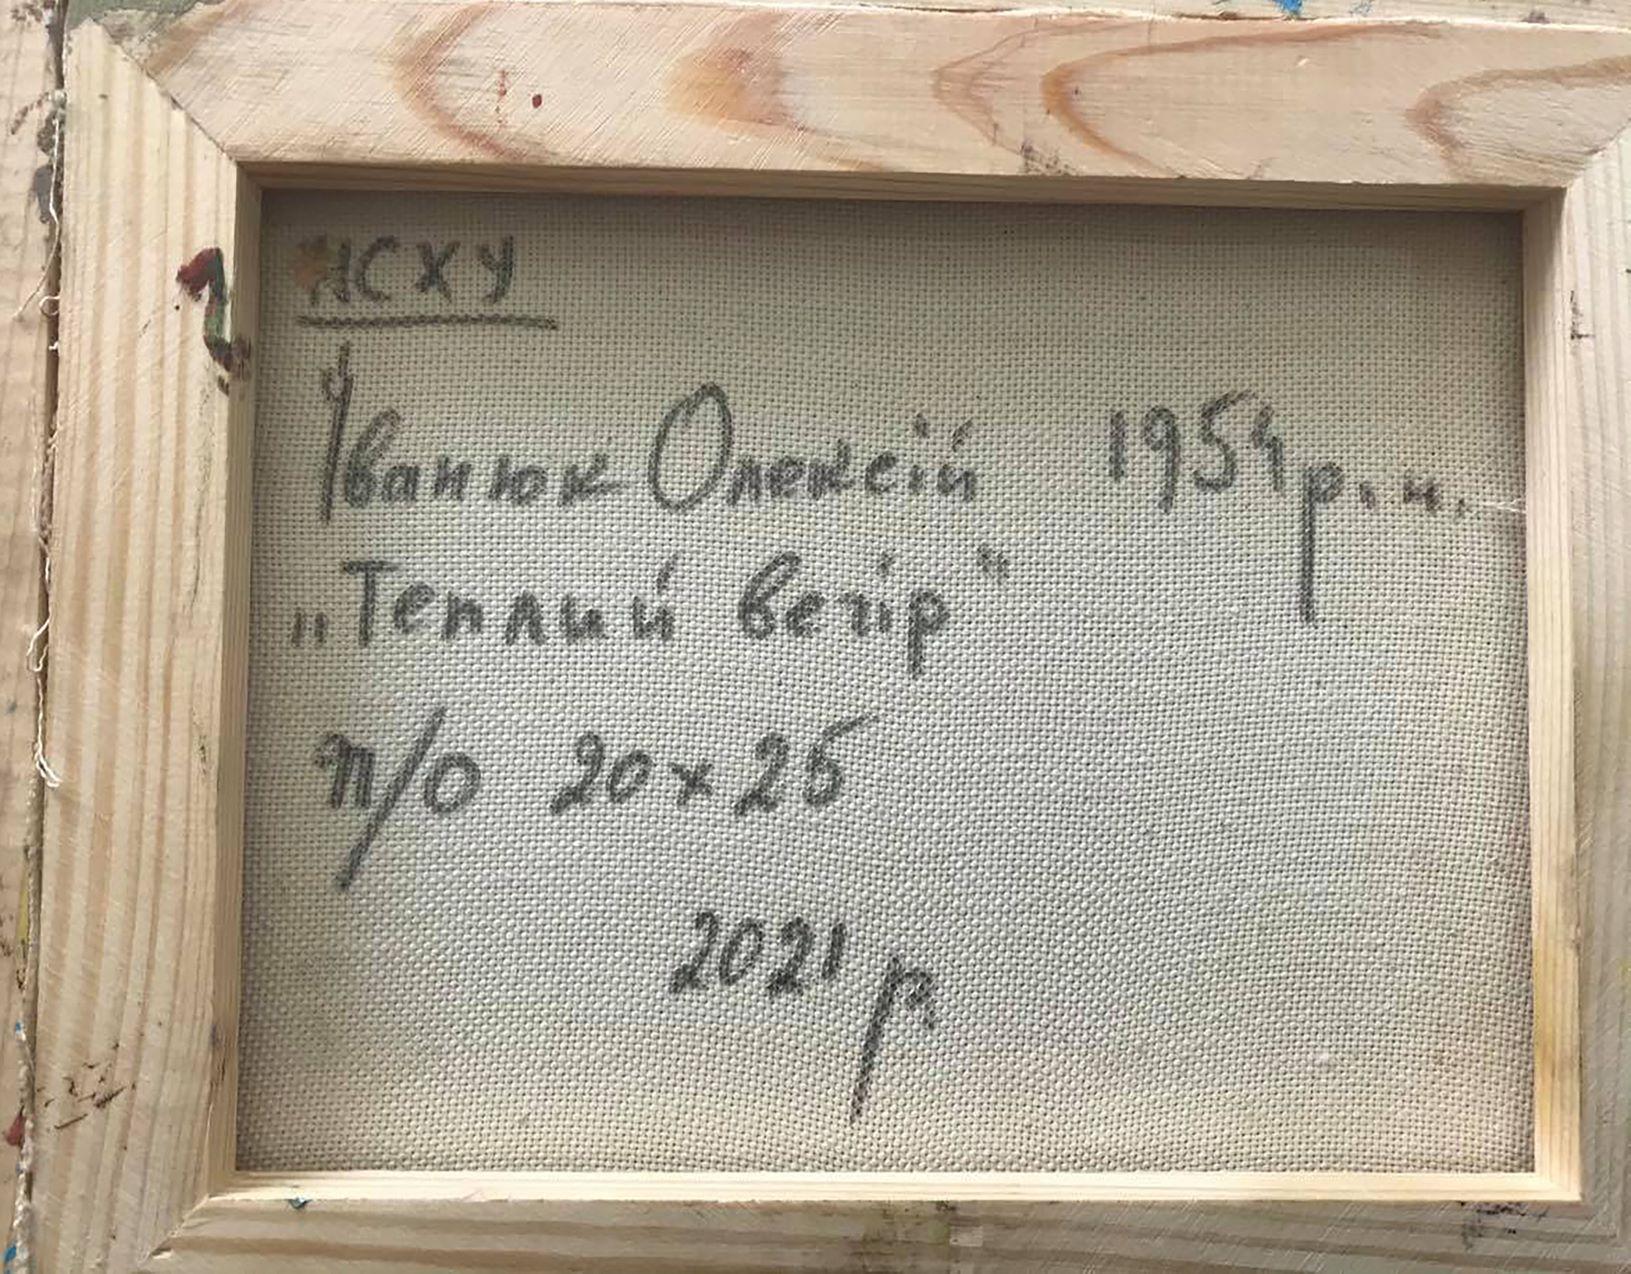 НСХУ
Іванюк Олексій 1954 р.н.
„Теплий вечір"
п/о 20х25
2021 р